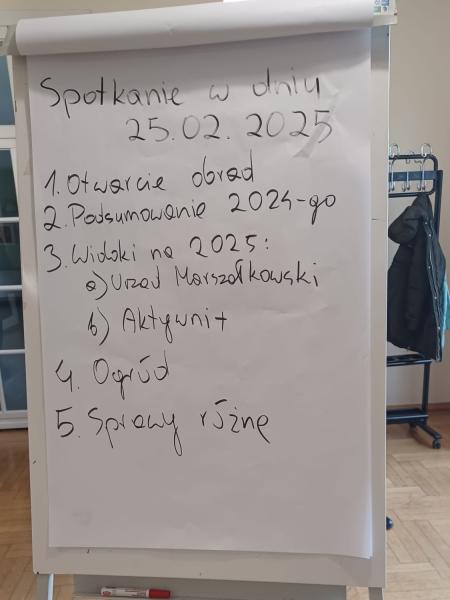 Spotkanie w dniu
25.02.2025
1. Otwarcie obrad
2. Podsumowanie 2024-go
3. Widoki na 2025:
a) Urząd Marszałkowski
b) Aktywni+
4. Ogród
5. Sprawy różne